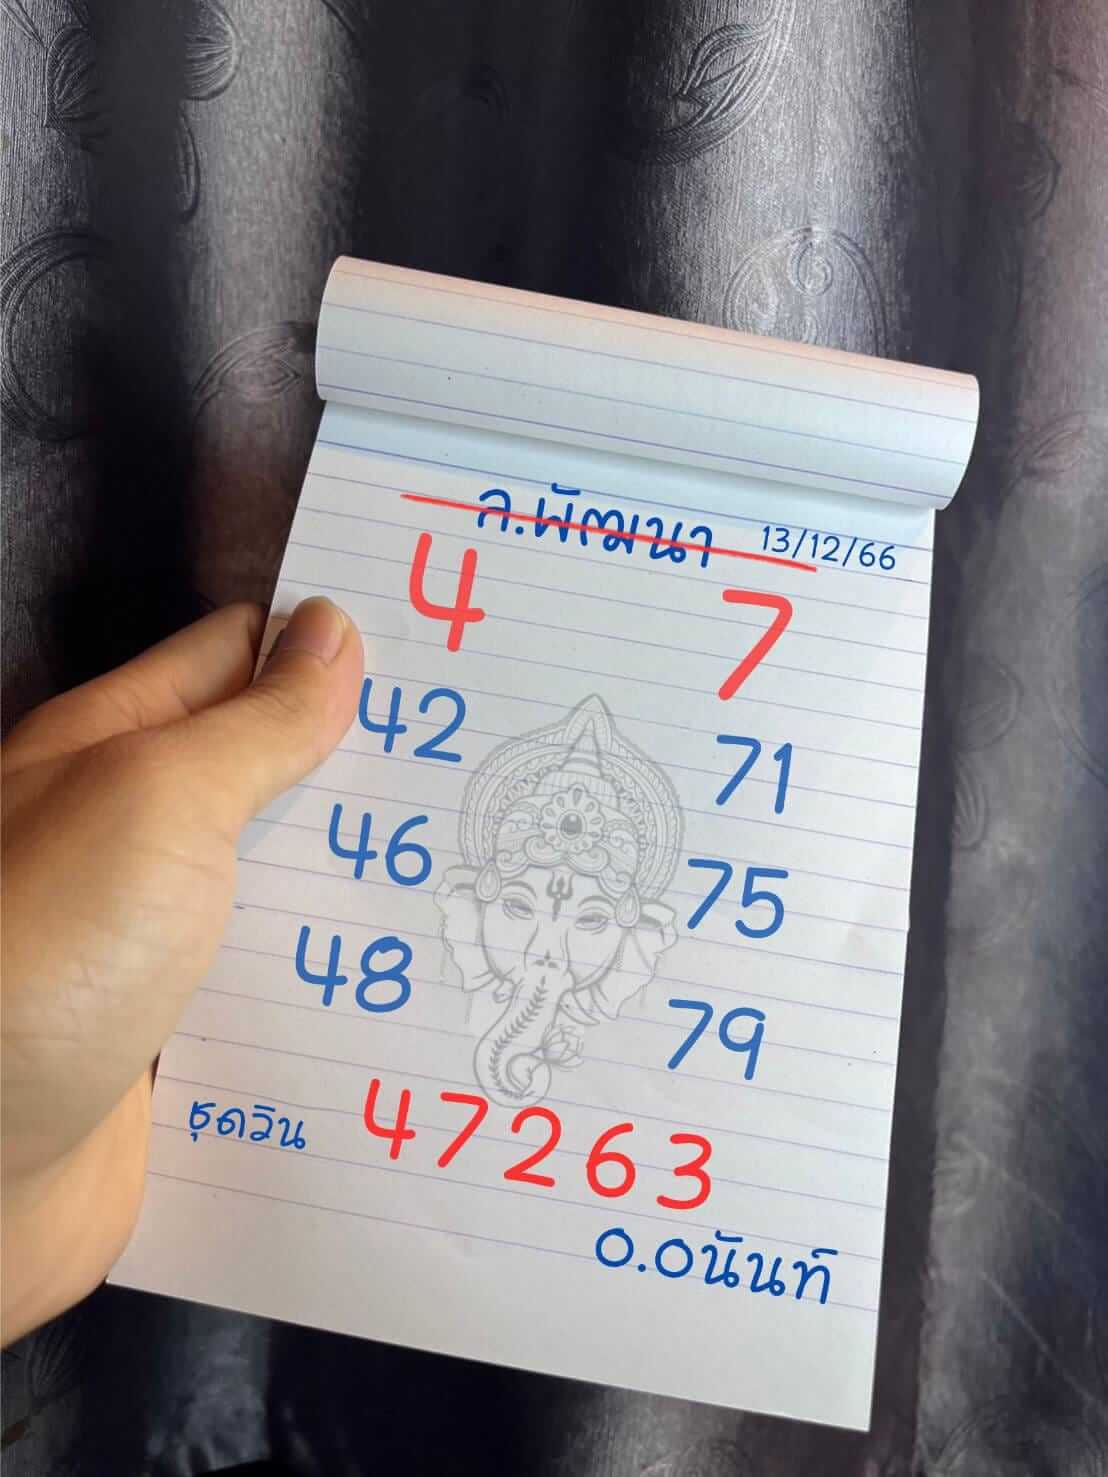 ล.พัฒนา 13/12/66
4 7
42 71
46 75
48 79
ชุดวิน 47263
อ.อนันท์